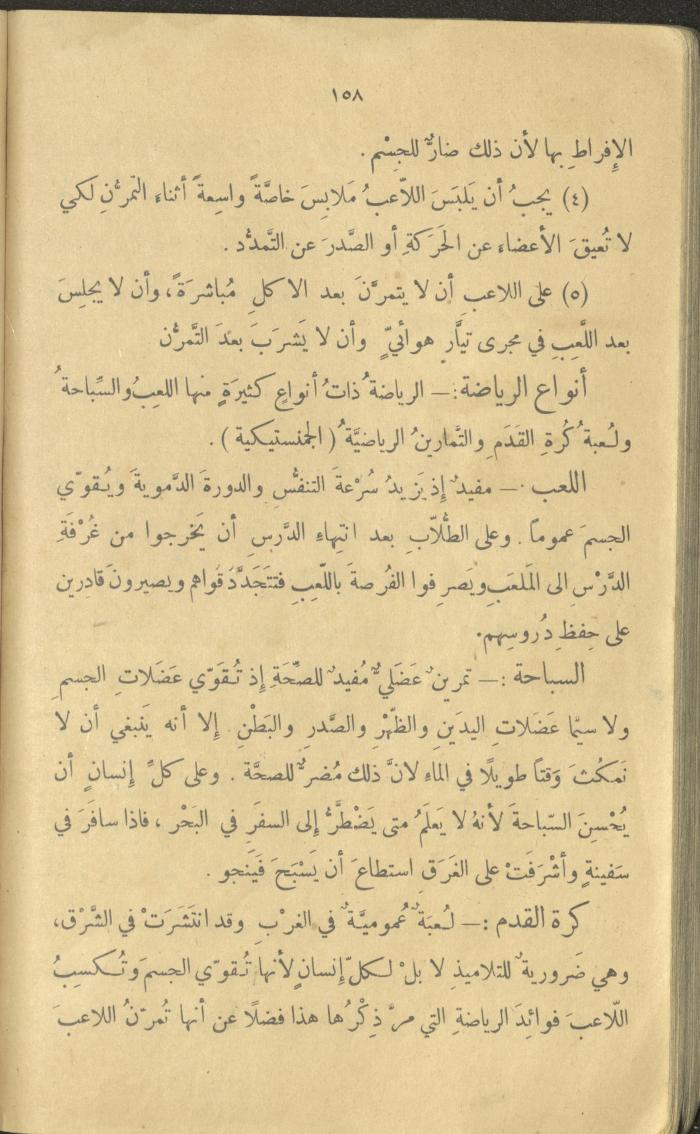 ١٥٨
الإفراطِ بها لأن ذلك ضارٌّ للجِسْم .
(٤) يجبُ أن يَلبَسَ اللاّعبُ مَلابِسَ خاصَّةً واسِعةً أثناء التّمرُّنِ لكي
لا تُعيقَ الأعضاء عن الحَرَكةِ أو الصَّدرَ عن التَّمدُّد .
(٥) على اللاعبِ أن لا يتمرَّنَ بعد الاكلِ مُباشرَةً ، وأن لا يجلِسَ
بعد اللَّعِبِ في مجرى تيَّارٍ هوائيٍّ وأن لا يَشرَبَ بعدَ التَّمرُّن
أنواع الرياضة : — الرياضةُ ذاتُ أنواعٍ كثيرَةٍ منها اللعِبُ والسِّباحةُ
ولُعبةُ كُرةِ القَدَمِ والتَّمارينُ الرياضيَّةُ ( الجمنستيكية ) .
اللعب . — مفيدٌ إذ يَزيدُ سُرْعةَ التنفُّسِ والدورةَ الدَّمويةَ ويُقوّي
الجسمَ عموماً . وعلى الطُّلاّبِ بعد انتِهاءِ الدَّرسِ أن يَخرجوا من غُرْفَةِ
الدَّرْسِ الى المَلعَبِ ويَصرِفوا الفُرصةَ باللّعِبِ فتتَجَدَّدَ قُواهم ويصيرونَ قادرين
على حِفظِ دُروسِهم .
السباحة : — تمرينٌ عَضَليٌّ مُفيدٌ للصِّحَّةِ إذ تُقَوّي عَضَلاتِ الجسمِ
ولا سيّما عَضَلاتِ اليدَينِ والظّهْرِ والصَّدرِ والبَطْنِ . إلا أنه يَنبغي أن لا
نَمكُثَ وَقتاً طويلًا في الماءِ لانَّ ذلك مُضرٌّ للصحَّة . وعلى كلِّ إنسانٍ أن
يُحْسِنَ السّباحةَ لأنهُ لا يَعلَمُ متى يَضْطَرُّ إلى السفَرِ في البَحْر ، فاذا سافَرَ في
سَفينةٍ وأشْرَفَتْ على الغَرَقِ استطاعَ أن يَسْبَحَ فَيَنجو .
كرة القدم : — لُعبَةٌ عُموميَّةٌ في الغرْبِ وقد انتَشَرَتْ في الشَّرْق ،
وهي ضَروريةٌ للتلاميذِ لا بلْ لكلّ إنسانٍ لأنها تُقوّي الجسمَ وتُكسِبُ
اللّاعبَ فوائِدَ الرياضةِ التي مرَّ ذِكْرُها هذا فضلًا عن أنها تُمرّنُ اللاعبَ